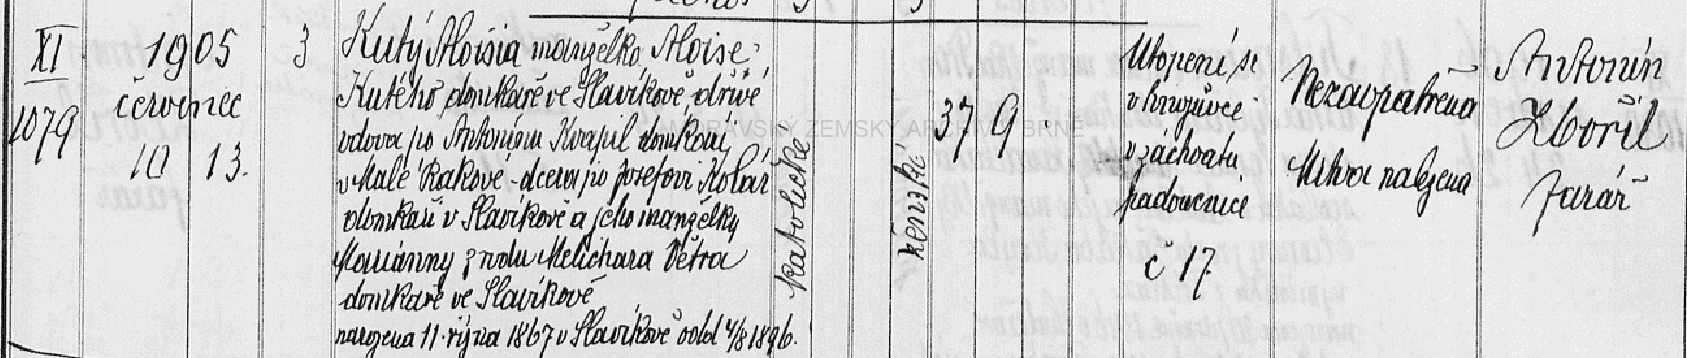 XI
1079
1905
červenec
10 13.
3
Kutý Aloisia manželka Aloise
Kutého, domkaře ve Slavíkově, dřívé
vdova po Antonínu Kvapil domkáři
v Malé Rakové, dcera po Josefovi Kolář
domkaři v Slavíkově a jeho manželky
Marianny z rodu Melichara Větra
domkaře ve Slavíkově
narozena 11. října 1867 v Slavíkově odd 4/8 1896.
katolické
ženské
37 9.
MORAVSKÝ ZEMSKÝ ARCHIV V BRNĚ
Utopení se
v záchvatu
padoucnice
č 17
Nezaopatřena
Mrtva nalezena
Antonín
Zbořil
farář